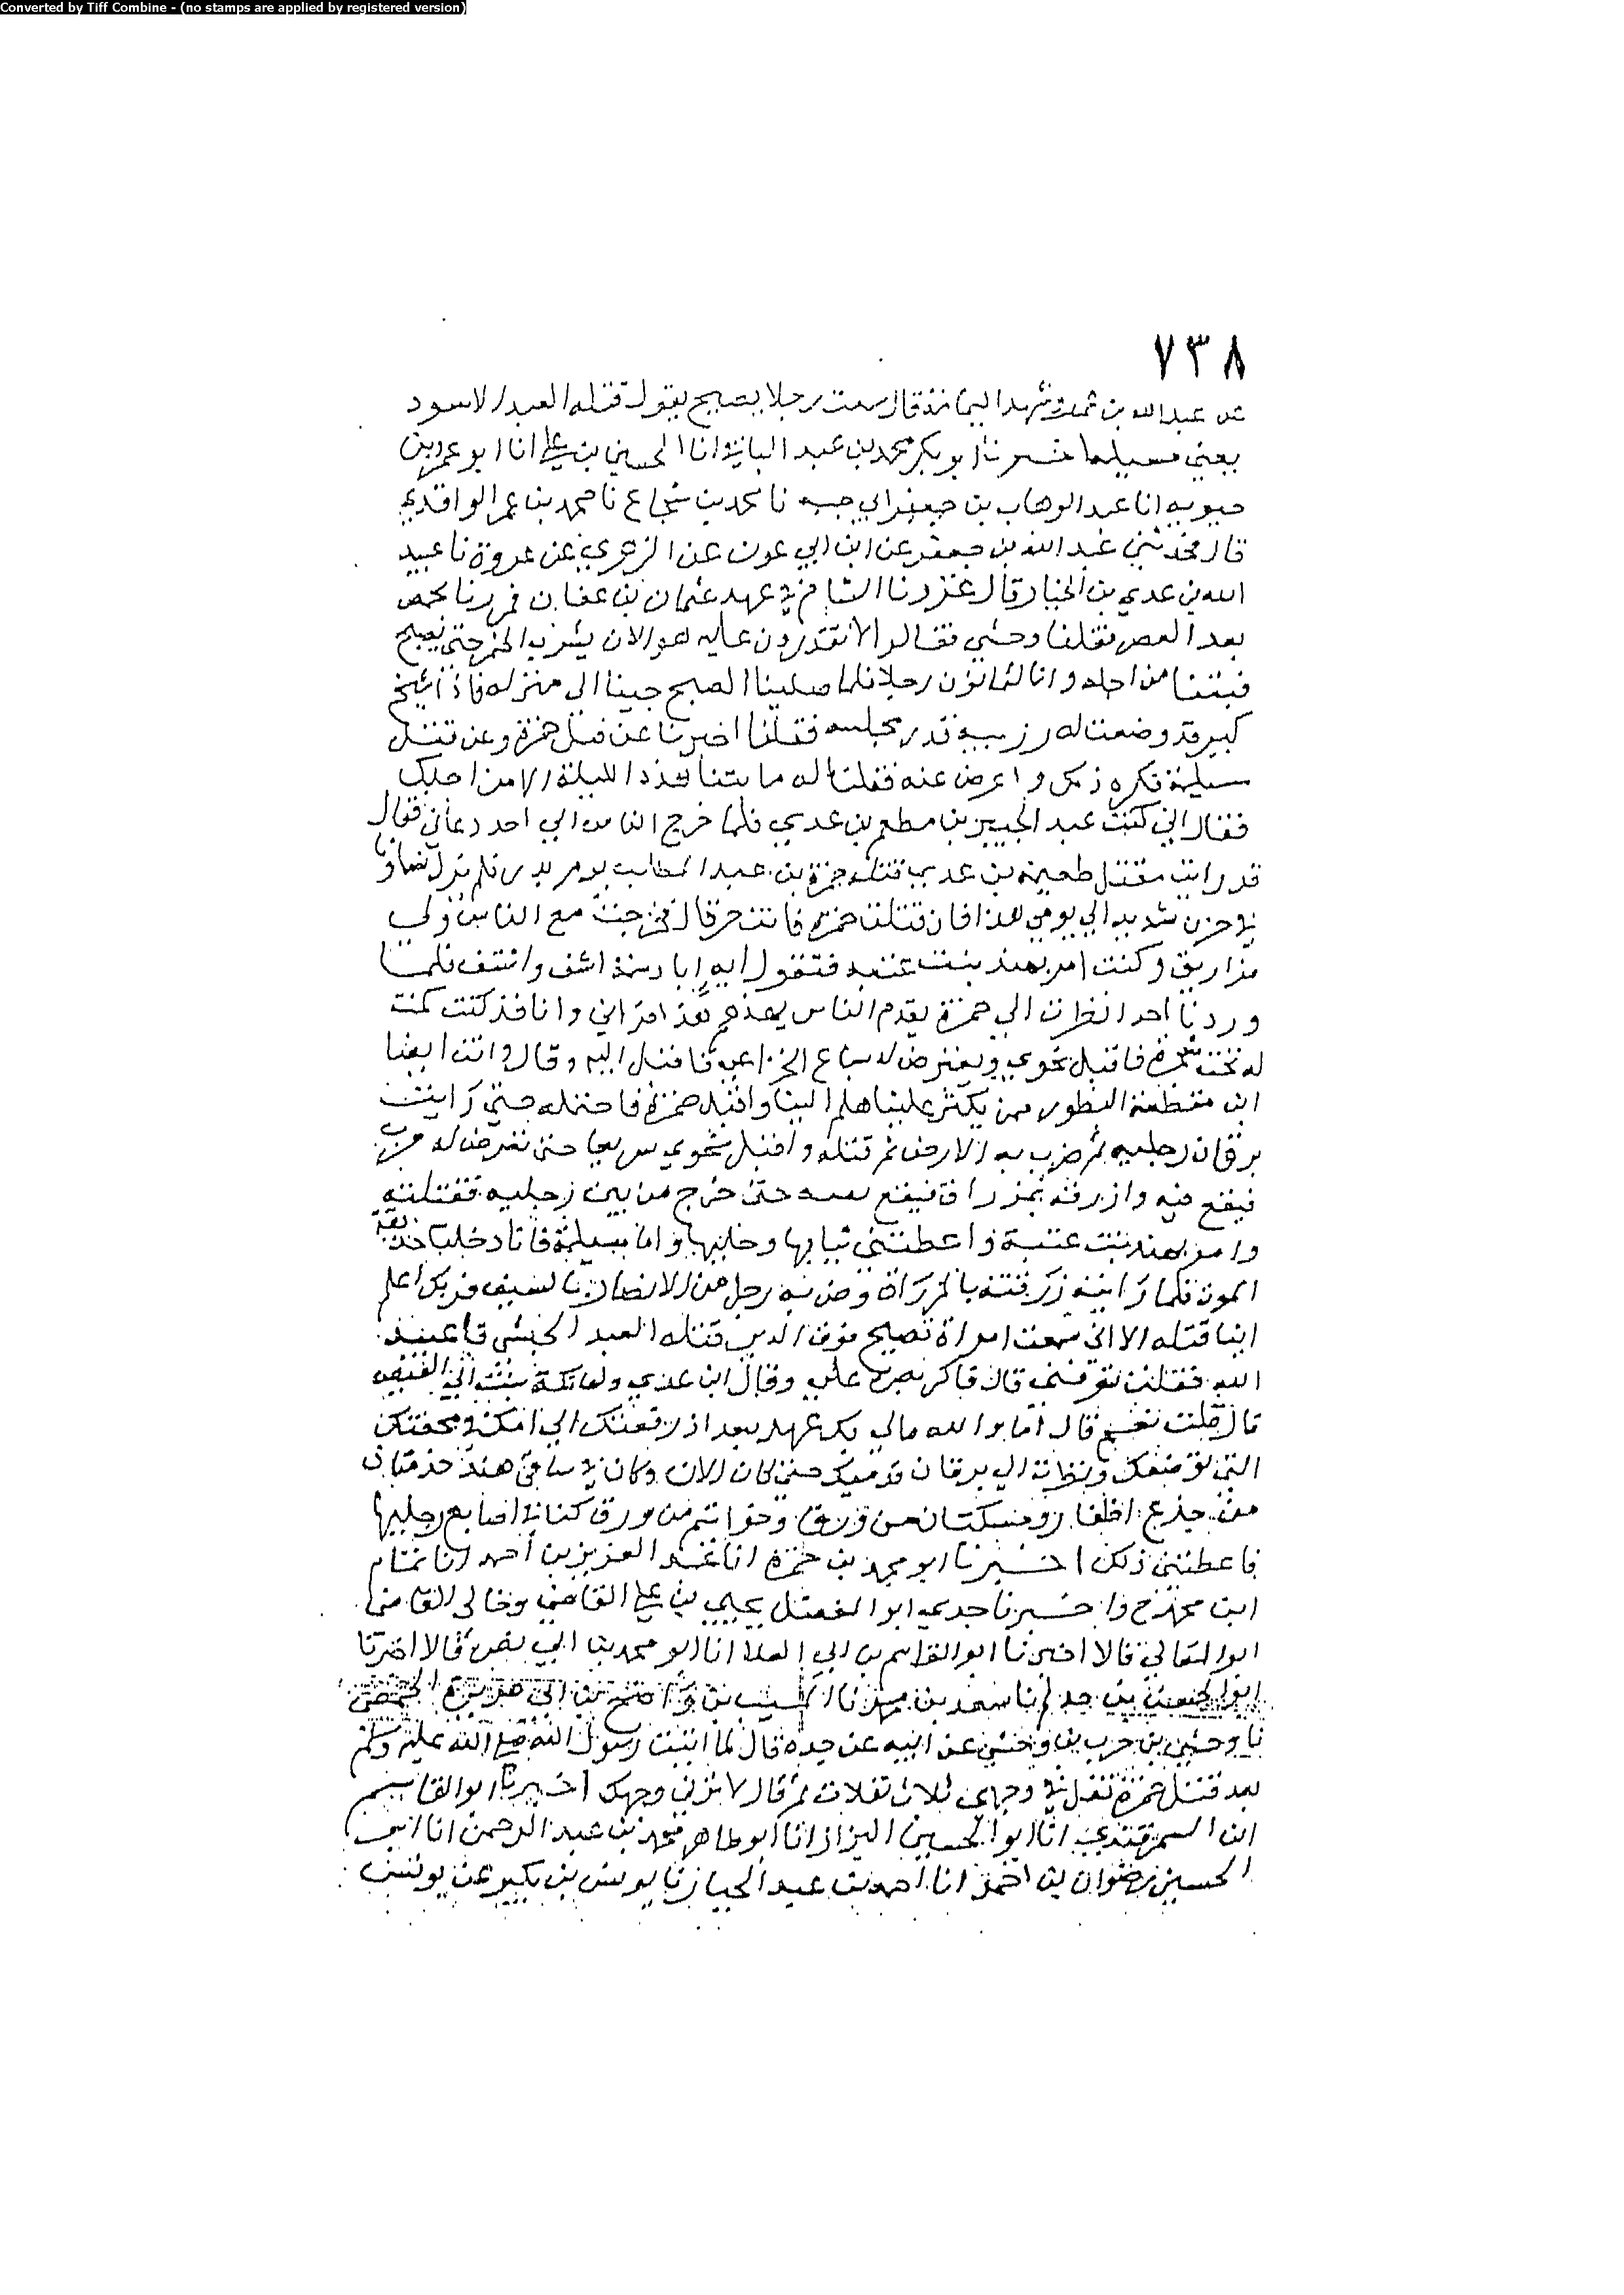 Converted by Tiff Combine - (no stamps are applied by registered version)
٧٣٨
عبد الله بن شهد اليمامة قال سمعت رجلا يصيح يقول قتله العبد الاسود
يعني مسيلمة ابو بكر محمد بن عبد الباقي انا الحسن بن علي انا ابو عمر بن
حيويه انا عبد الوهاب بن ابي حيه نا محمد بن شجاع نا محمد بن عمر الواقدي
قال فحدثني عبد الله بن جعفر عن ابن ابي عون عن الزهري عن عروة نا عبيد
الله بن عدي بن الخيار قال غزونا الشام في عهد عثمان بن عفان فمررنا بحمص
بعد العصر فقلنا وحشي فقالوا لا تقدرون عليه هو الان يشرب الخمر حتى يصبح
فبتنا من اجله وانا لثمانون رجلا فلما صلينا الصبح جينا الى منزله فاذا شيخ
كبير قد وضعت له زربية قدر مجلسه فقلنا اخبرنا عن قتل حمزة وعن قتل
مسيلمة فكره ذلك واعرض عنه فقلنا له ما بتنا هذه الليلة الا من اجلك
فقال اني كنت عبد الجبير بن مطعم بن عدي فلما خرج الناس الى احد دعاني فقال
قد رايت مقتل طعيمة بن عدي قتله حمزة بن عبد المطلب يوم بدر فلم تزل نساونا
في حزن شديد الى يومي هذا فان قتلت حمزة فانت حر قال فخرجت مع الناس ولي
مزاريق وكنت امر بهند بنت عتبه فتقول ايه ابا دسمة اشف واشتف فلما
وردنا احد انظرت الى حمزة يقدم الناس يهذهم هذا فراني وانا قد كنت كمنت
له تحت شجرة فاقبل نحوي ويعترض له سباع الخزاعي فاقبل اليه وقال وانت ايضا
ابن مقطعة البظور ممن يكثر علينا هلم الينا واقبل حمزة فاحتمله حتى رايت
برقان رجليه ثم ضرب به الارض ثم قتله واقبل نحوي سريعا حتى تعرض له جرف
فيقع فيه وازرقه بمزراق فيقع حتى خرج من بين رجليه فقتلته
وامر بهند بنت عتبة فاعطتني ثيابها وحليها واما مسيلمة فانا دخلنا حديقة
الموت فلما رايته زرقته بالمزراق وضربه رجل من الانصار بالسيف فربك اعلم
اينا قتله الا اني سمعت امراة تصيح فوق الدير قتله العبد الحبشي قال عبيد
الله فقلت تعرفني قال فاكر بصره علي وقال ابن عدي ولعاتكة بنت ابي العيص
قال قلت نعم قال اما والله مالي بك عهد بعد اذ رفعتك الى امك في محفتك
التي ترضعك ونظرت الى برقان قدميك حتى كان الان وكان في ساقي هند خدمتان
من جزع ظفار ومسكتان من ورق وخواتم من ورق كنا في اصابع رجليها
فاعطتني ذلك اخبرنا ابو محمد بن حمزة انا عبد العزيز بن احمد انا تمام
ابن محمد ح واخبرنا جدي ابو الفضل يحيى بن علي القاضي وخالي القاضي
ابو المعالي قالا اخبرنا ابو القاسم بن ابي العلا انا ابو محمد بن ابي نصر قالا اخبرنا
ابو الحسن بن حذلم نا سعد بن محمد نا المسيب بن واضح
نا وحشي بن حرب بن وحشي عن ابيه عن جده قال لما اتيت رسول الله صلى الله عليه وسلم
بعد قتل حمزة تفل في وجهي ثلاث تفلات ثم قال لا ترني وجهك اخبرنا ابو القاسم
ابن السمرقندي انا ابو الحسين البزاز انا ابو طاهر محمد بن عبد الرحمن انا
الحسين رضوان بن احمد انا احمد بن عبد الجبار نا يونس بن بكير عن يونس